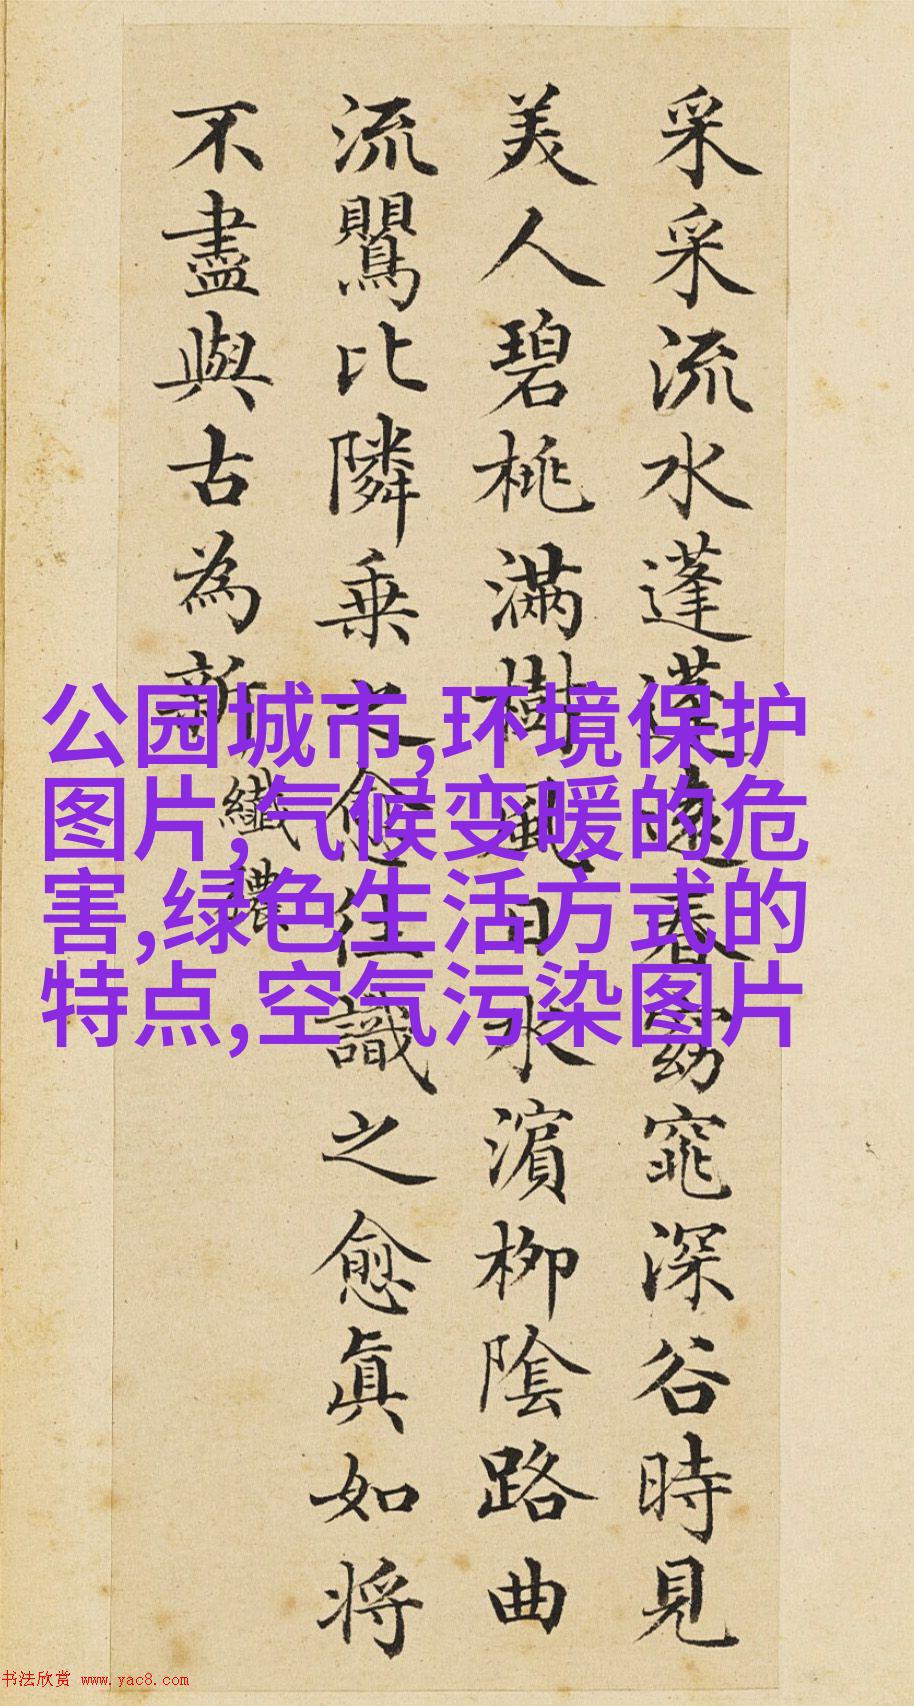 采采流水蓬蓬遠春窈窕深谷時見
美人碧桃滿樹風日水濵柳隂路曲
流鸎比隣乗之愈往識之愈眞如将
不盡與古為新
纖穠
公园城市,环境保护
图片,气候变暖的危
害,绿色生活方式的
特点,空气污染图片
书法欣赏 www.yac8.com